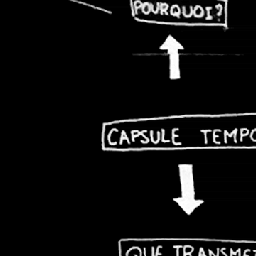 POURQUOI?
CAPSULE TEMPO
QUE TRANSMET